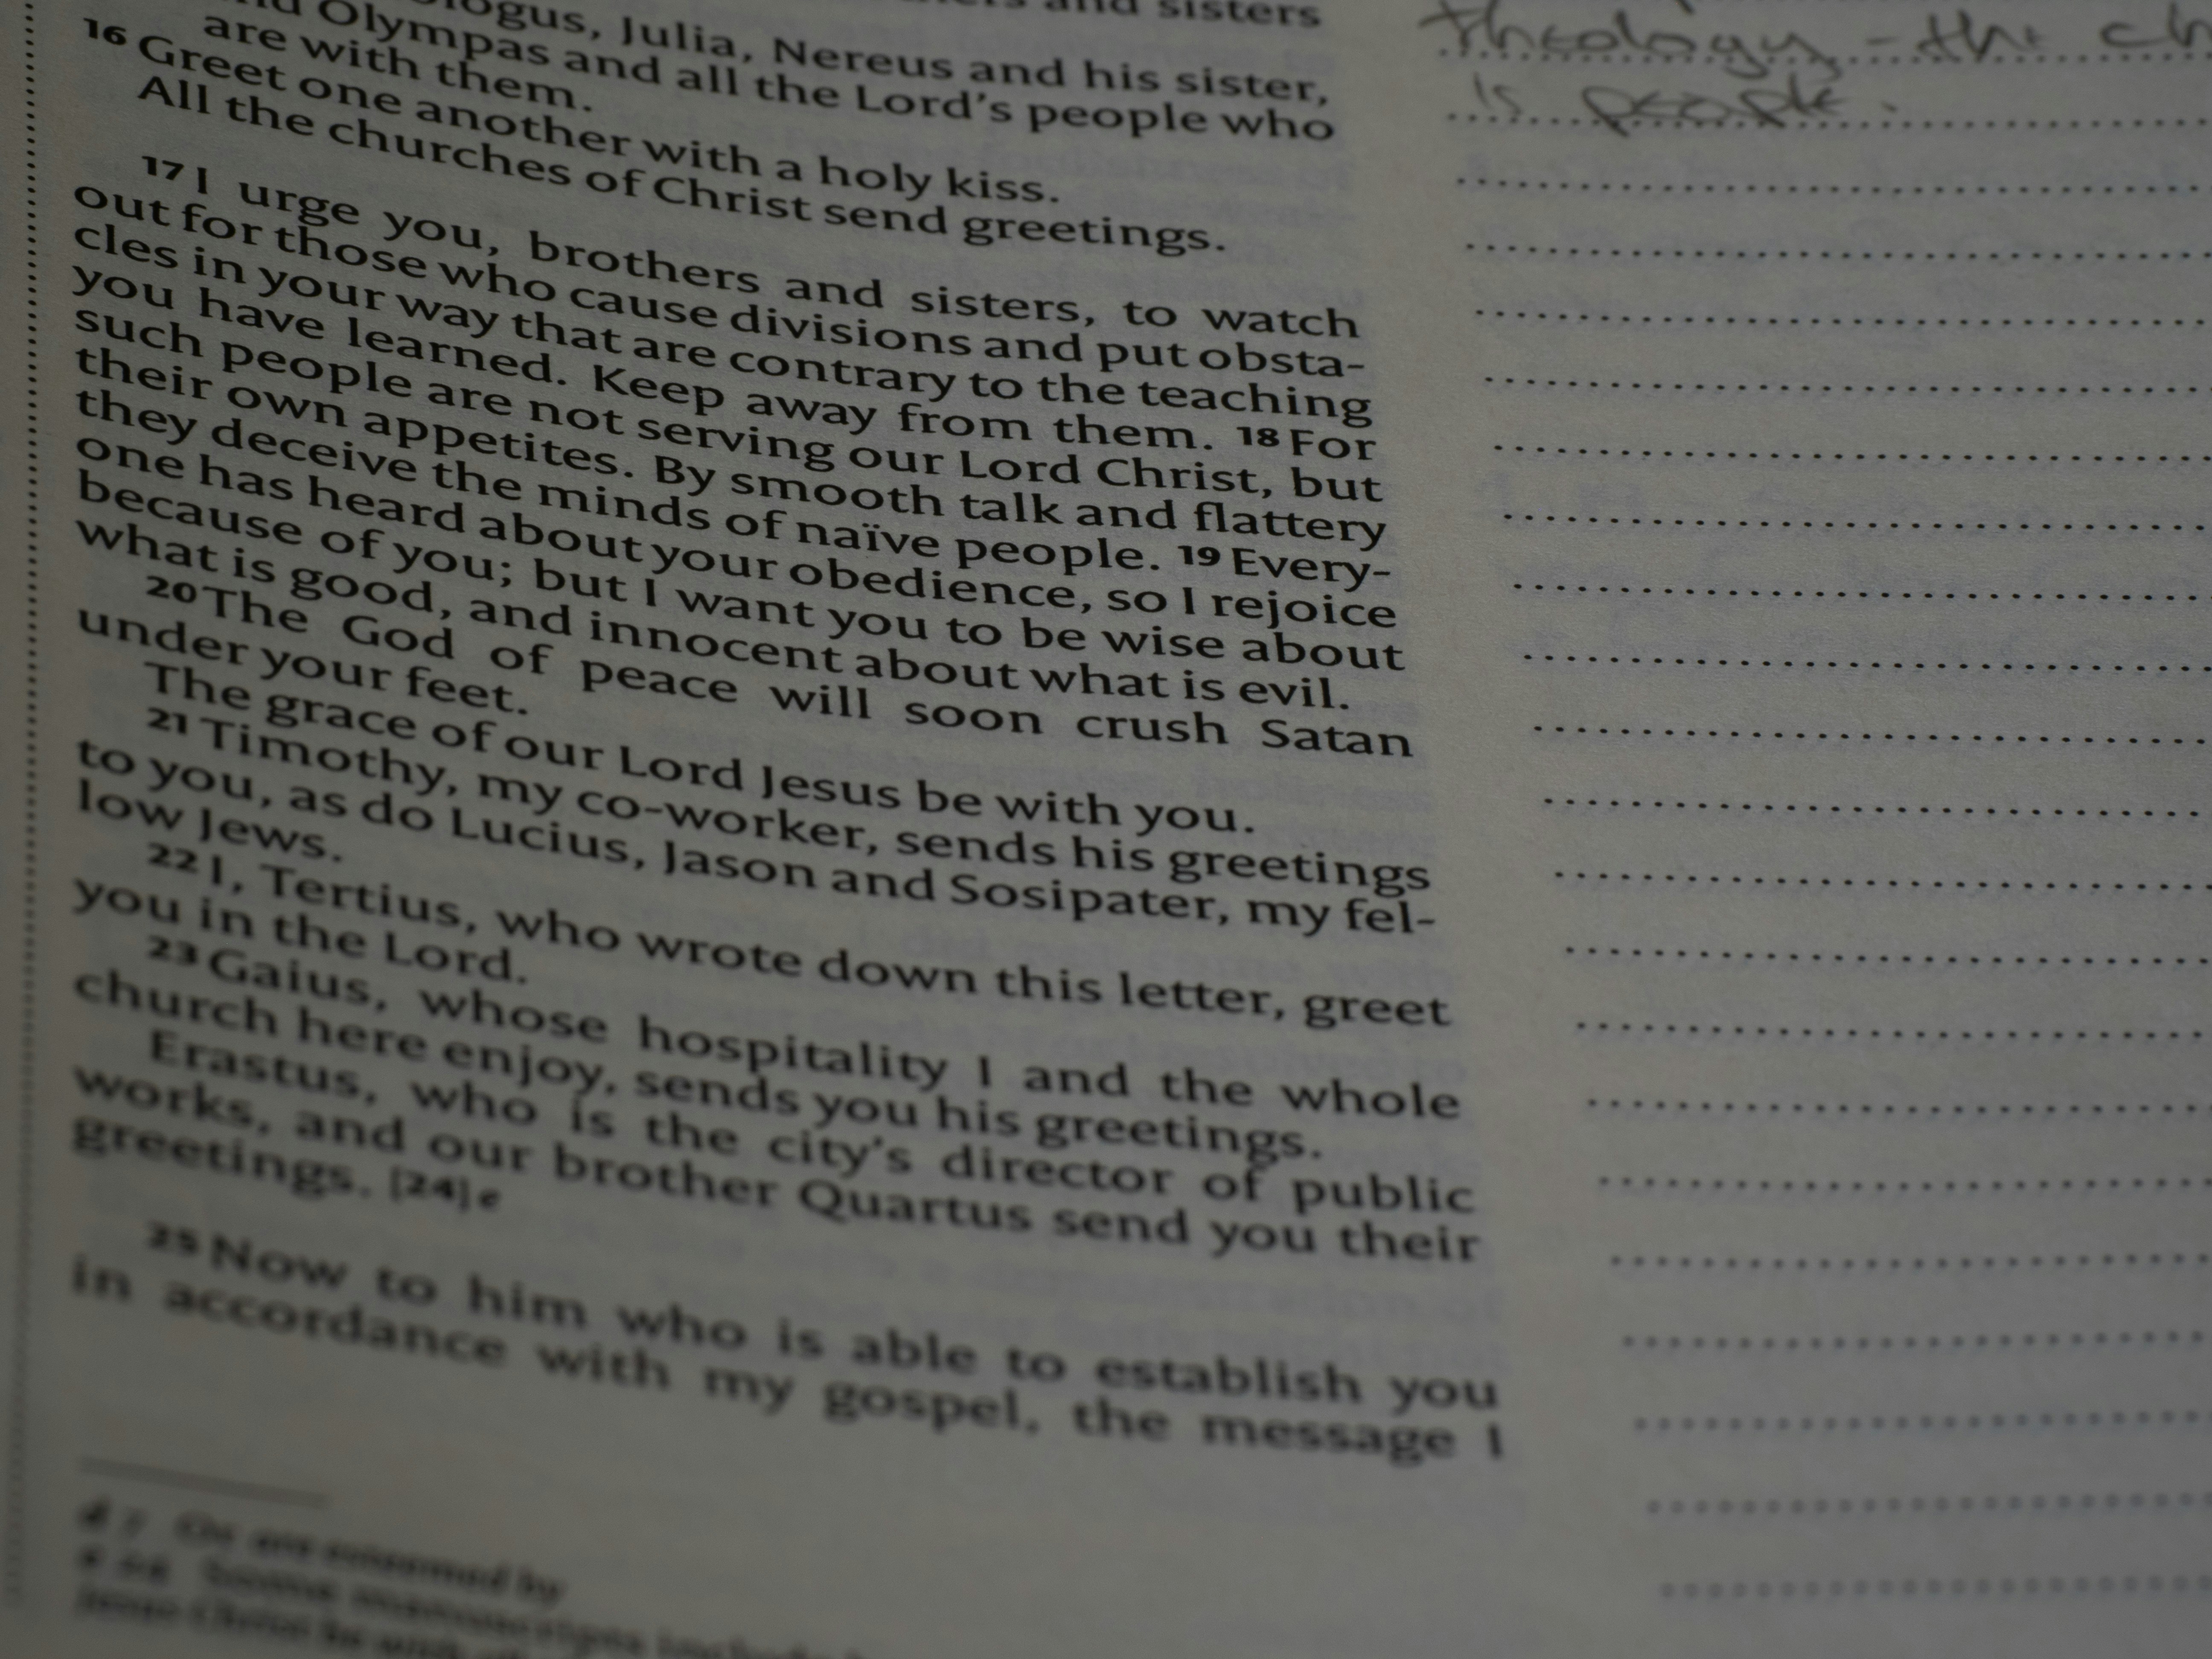 ologus, Julia, Nereus and his sister,
Olympas and all the Lord's people who
are with them.
16 Greet one another with a holy kiss.
All the churches of Christ send greetings.
17 I urge you, brothers and sisters, to watch
out for those who cause divisions and put obsta-
cles in your way that are contrary to the teaching
you have learned. Keep away from them. 18 For
such people are not serving our Lord Christ, but
their own appetites. By smooth talk and flattery
they deceive the minds of naïve people. 19 Every-
one has heard about your obedience, so I rejoice
because of you; but I want you to be wise about
what is good, and innocent about what is evil.
20 The God of peace will soon crush Satan
under your feet.
The grace of our Lord Jesus be with you.
21 Timothy, my co-worker, sends his greetings
to you, as do Lucius, Jason and Sosipater, my fel-
low Jews.
22 I, Tertius, who wrote down this letter, greet
you in the Lord.
23 Gaius, whose hospitality I and the whole
church here enjoy, sends you his greetings.
Erastus, who is the city's director of public
works, and our brother Quartus send you their
greetings. [24] e
25 Now to him who is able to establish you
in accordance with my gospel, the message I
d 7 Or are esteemed by
e 24 Some manuscripts include
Jesus Christ be with
theology - the ch
is people.